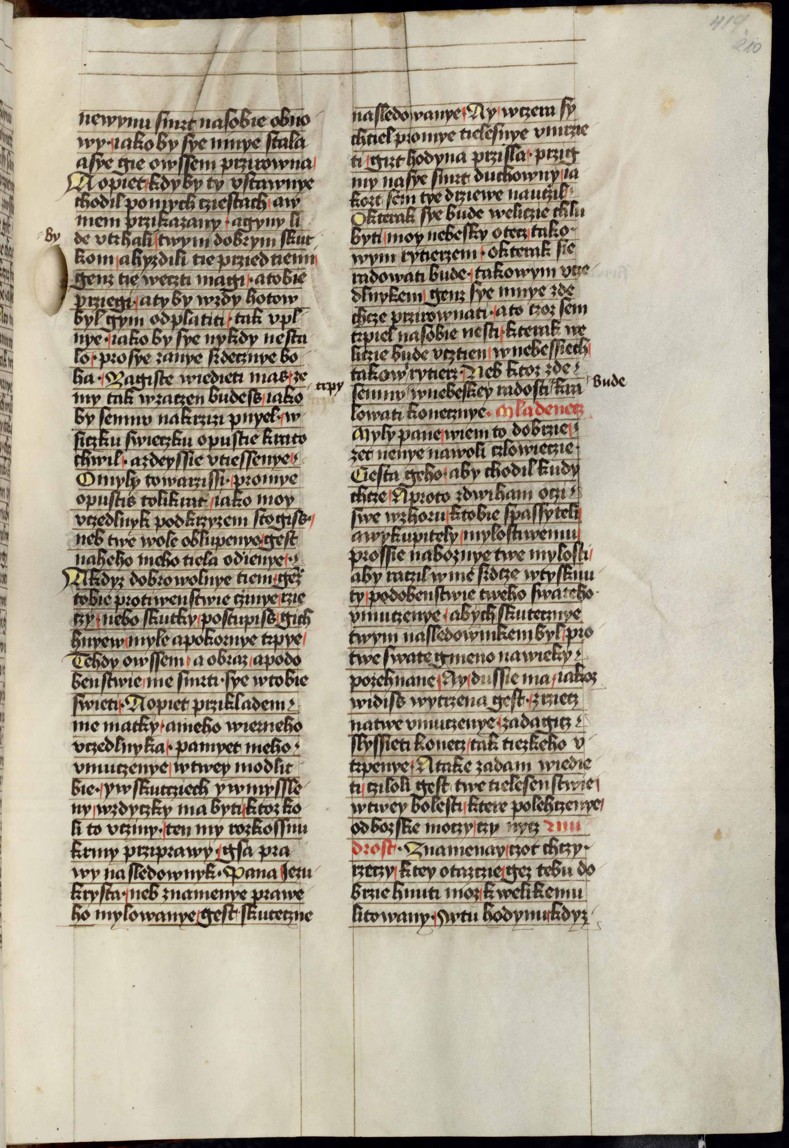 419
210
newynu smrt nasobie obno
wy · iako by sye mnye stala
a sye gie owssem przirowna
A opiet kdy by ty vstawnye
chodil po mych cziestach / a w
mem przikazany · a gyny li
By
de vtrhali twym dobrym skut
kom / a hyzdili tie przied tiemi
genz tie wczti magi · a tobie
prziegi · a ty by wzdy hotow
byl gym odplatiti · tak vpl
nye · iako by sye nykdy nesta
lo · pro sye ranye srdecznye bo
ha · Nagiste wiedieti mas ze
my tak wraczen budess / iako
by semnu nakrzizi pnyel · w
siczku swieczku opustie krato
chwil · a zdeyssie vtiessenye ·
O myly towarzissi · pro mye
opustiss tolikrat / iako moy
vczedlnyk pod krzyzem stogiss ·
neb twe wole oblupenye gest
naheho meho tiela odienye ·
A kdyz dobrowolnye tiem gez
tobie protiwenstwie czinye rzie
czy / nebo skutky / postupiss gich
hnyew / myle a pokornye trpye
trpy
Tehdy owssem / a obraz / a podo
benstwie / me smrti · sye w tobie
swieti · A opiet przikladem
me matky · a meho wierneho
vczedlnyka · pamyet meho
vmuczenye / w twey modlit
bie · y w skutciech y w myssle
ny / wzdyczky ma byti / ktoz ko
li to vcziny · ten my rozkossnu
krmy prziprawy · gsa pra
wy nasledownyk · Pana Jezu
krysta · neb znamenye prawe
ho mylowanye / gest skuteczne
nasledowanye · Ay / wczem sy
chtiel pro mye tielesnye vmrzie
ti / giz t hodyna przissla · przig
my na sye smrt duchowny / ia
koz t sem tye drziewe nauczil ·
O kterak sye bude welicze chlu
byti / moy nebesky otecz / tako
wym rytierzem · o kterak sie
radowati bude · takowym vcze
dlnykem / genz sye mnye zde
chcze przirownati · a to czoz sem
trpiel na sobie nesti · kterak we
licze bude vcztien / w nebessiech
takow rytierz · Neb ktoz zde
semnu / w nebeskey radosti / kra
Bude
lowati konecznye · Mladenecz
Myly pane / wiem to dobrzie
zet nenye na woli czlowieczie
Cesta geho · aby chodil kudy
chcze / A proto zdwiham oczi
swe wzhoru / k tobie spassyteli
a wykupitely / mylostiwemu
prossie naboznye twe mylosti
aby raczil w me srdcze wtysknu
ty / podobenstwie tweho swateho
vmuczenye · abych skutecznye
twym nasledownikem byl / pro
twe swate gmeno na wieky
pozehnane · Ay dussie ma / iakoz
widiss wytrzena gest · z rziecz
na twe vmuczenye · zadagicz
slyssieti konecz / tak tiezkeho v
trpenye · A take zadam wiedie
ti / cziloli gest twe tielesenstwie
w twey bolesti / ktere polehczenye
od bozske moczy / czy nycz Mu
drost · Znamenay / czoz t chczy
rzeczy / k tey otazczie / gez tebu do
brzie hnuti moz / k welikemu
litowany · W tu hodynu / kdyz